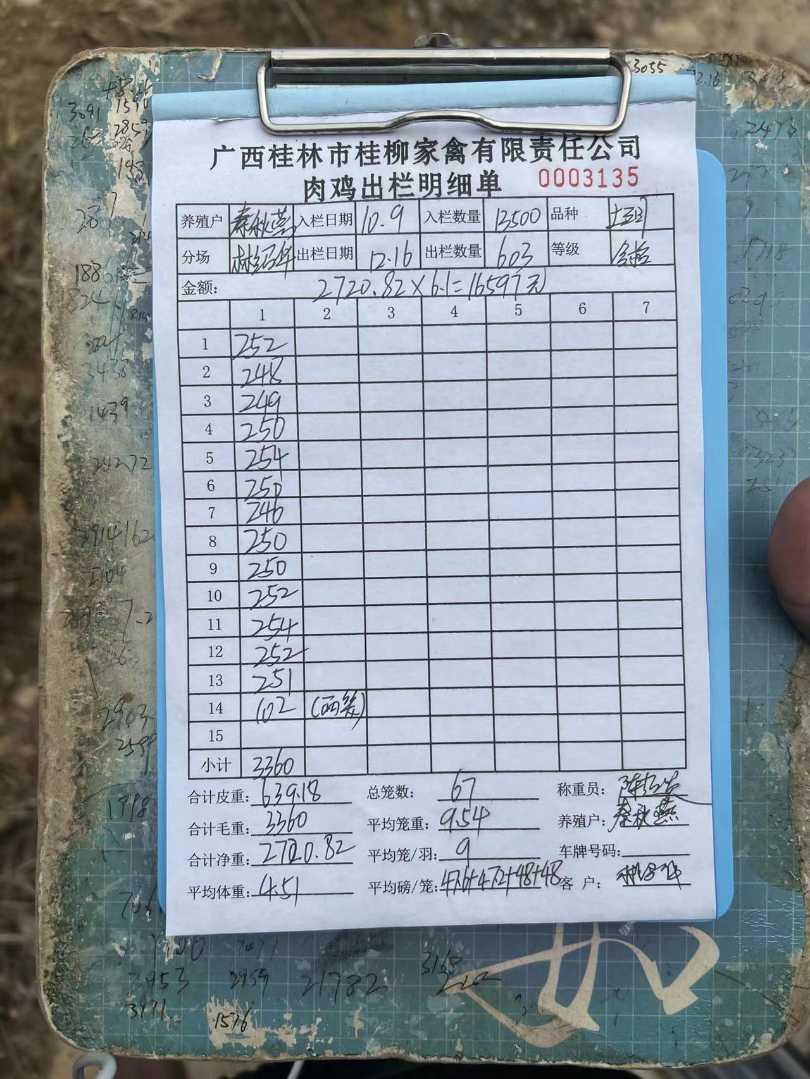 广西桂林市桂柳家禽有限责任公司
肉鸡出栏明细单 0003135
养殖户 秦秋燕 入栏日期 10.9 入栏数量 13500 品种
分场 出栏日期 12.16 出栏数量 603 等级
金额: 2720.82×6.1=16597元
1 2 3 4 5 6 7
1 252
2 248
3 249
4 250
5 254
6 250
7 246
8 250
9 250
10 252
11 254
12 252
13 251
14 102 (两笼)
15
小计 3360
合计皮重: 639.18 总笼数: 67 称重员:
合计毛重: 3360 平均笼重: 9.54 养殖户: 秦秋燕
合计净重: 2720.82 平均笼/羽: 9 车牌号码:
平均体重: 4.51 平均磅/笼: 47.6+47.2+48+48 客 户:
3055
3091
188
1439
24272
2953
2959
21782
3971
1576